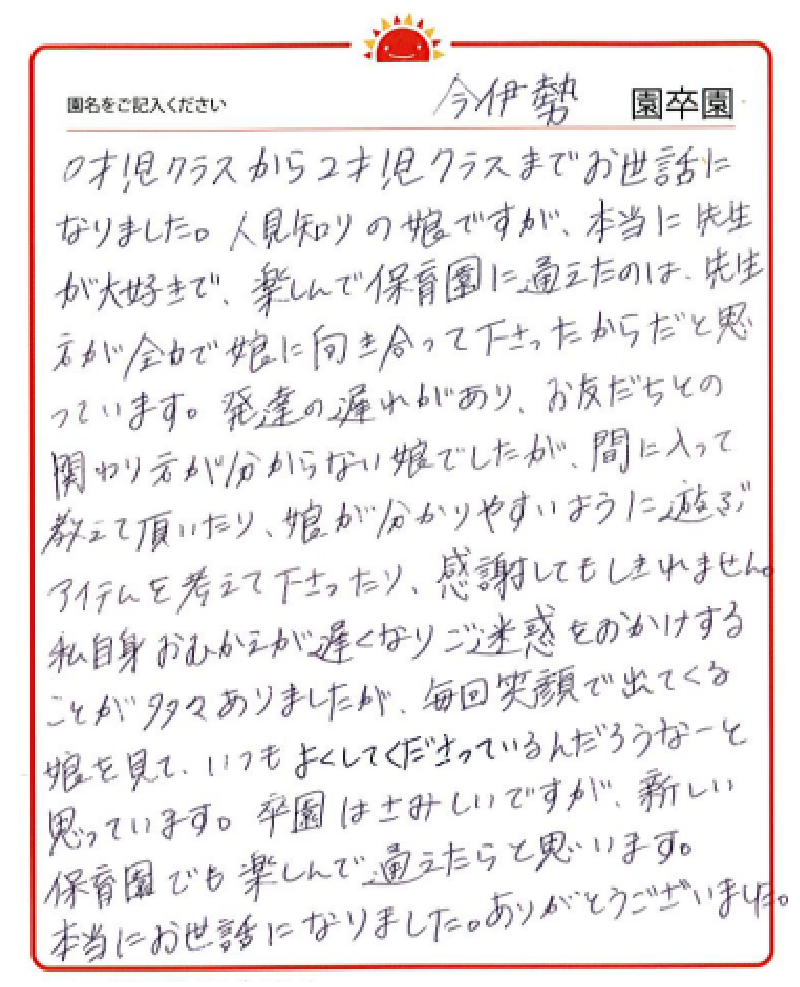 園名をご記入ください 今伊勢 園卒園
0才児クラスから2才児クラスまでお世話に
なりました。人見知りの娘ですが、本当に先生
が大好きで、楽しんで保育園に通えたのは、先生
方が全力で娘に向き合って下さったからだと思
っています。発達の遅れがあり、お友だちとの
関わり方が分からない娘でしたが、間に入って
教えて頂いたり、娘が分かりやすいように遊ぶ
アイテムを考えて下さったり、感謝してもしきれません。
私自身おむかえが遅くなりご迷惑をおかけする
ことが多々ありましたが、毎回笑顔で出てくる
娘を見て、いつもよくしてくださっているんだろうなーと
思っています。卒園はさみしいですが、新しい
保育園でも楽しんで通えたらと思います。
本当にお世話になりました。ありがとうございました。